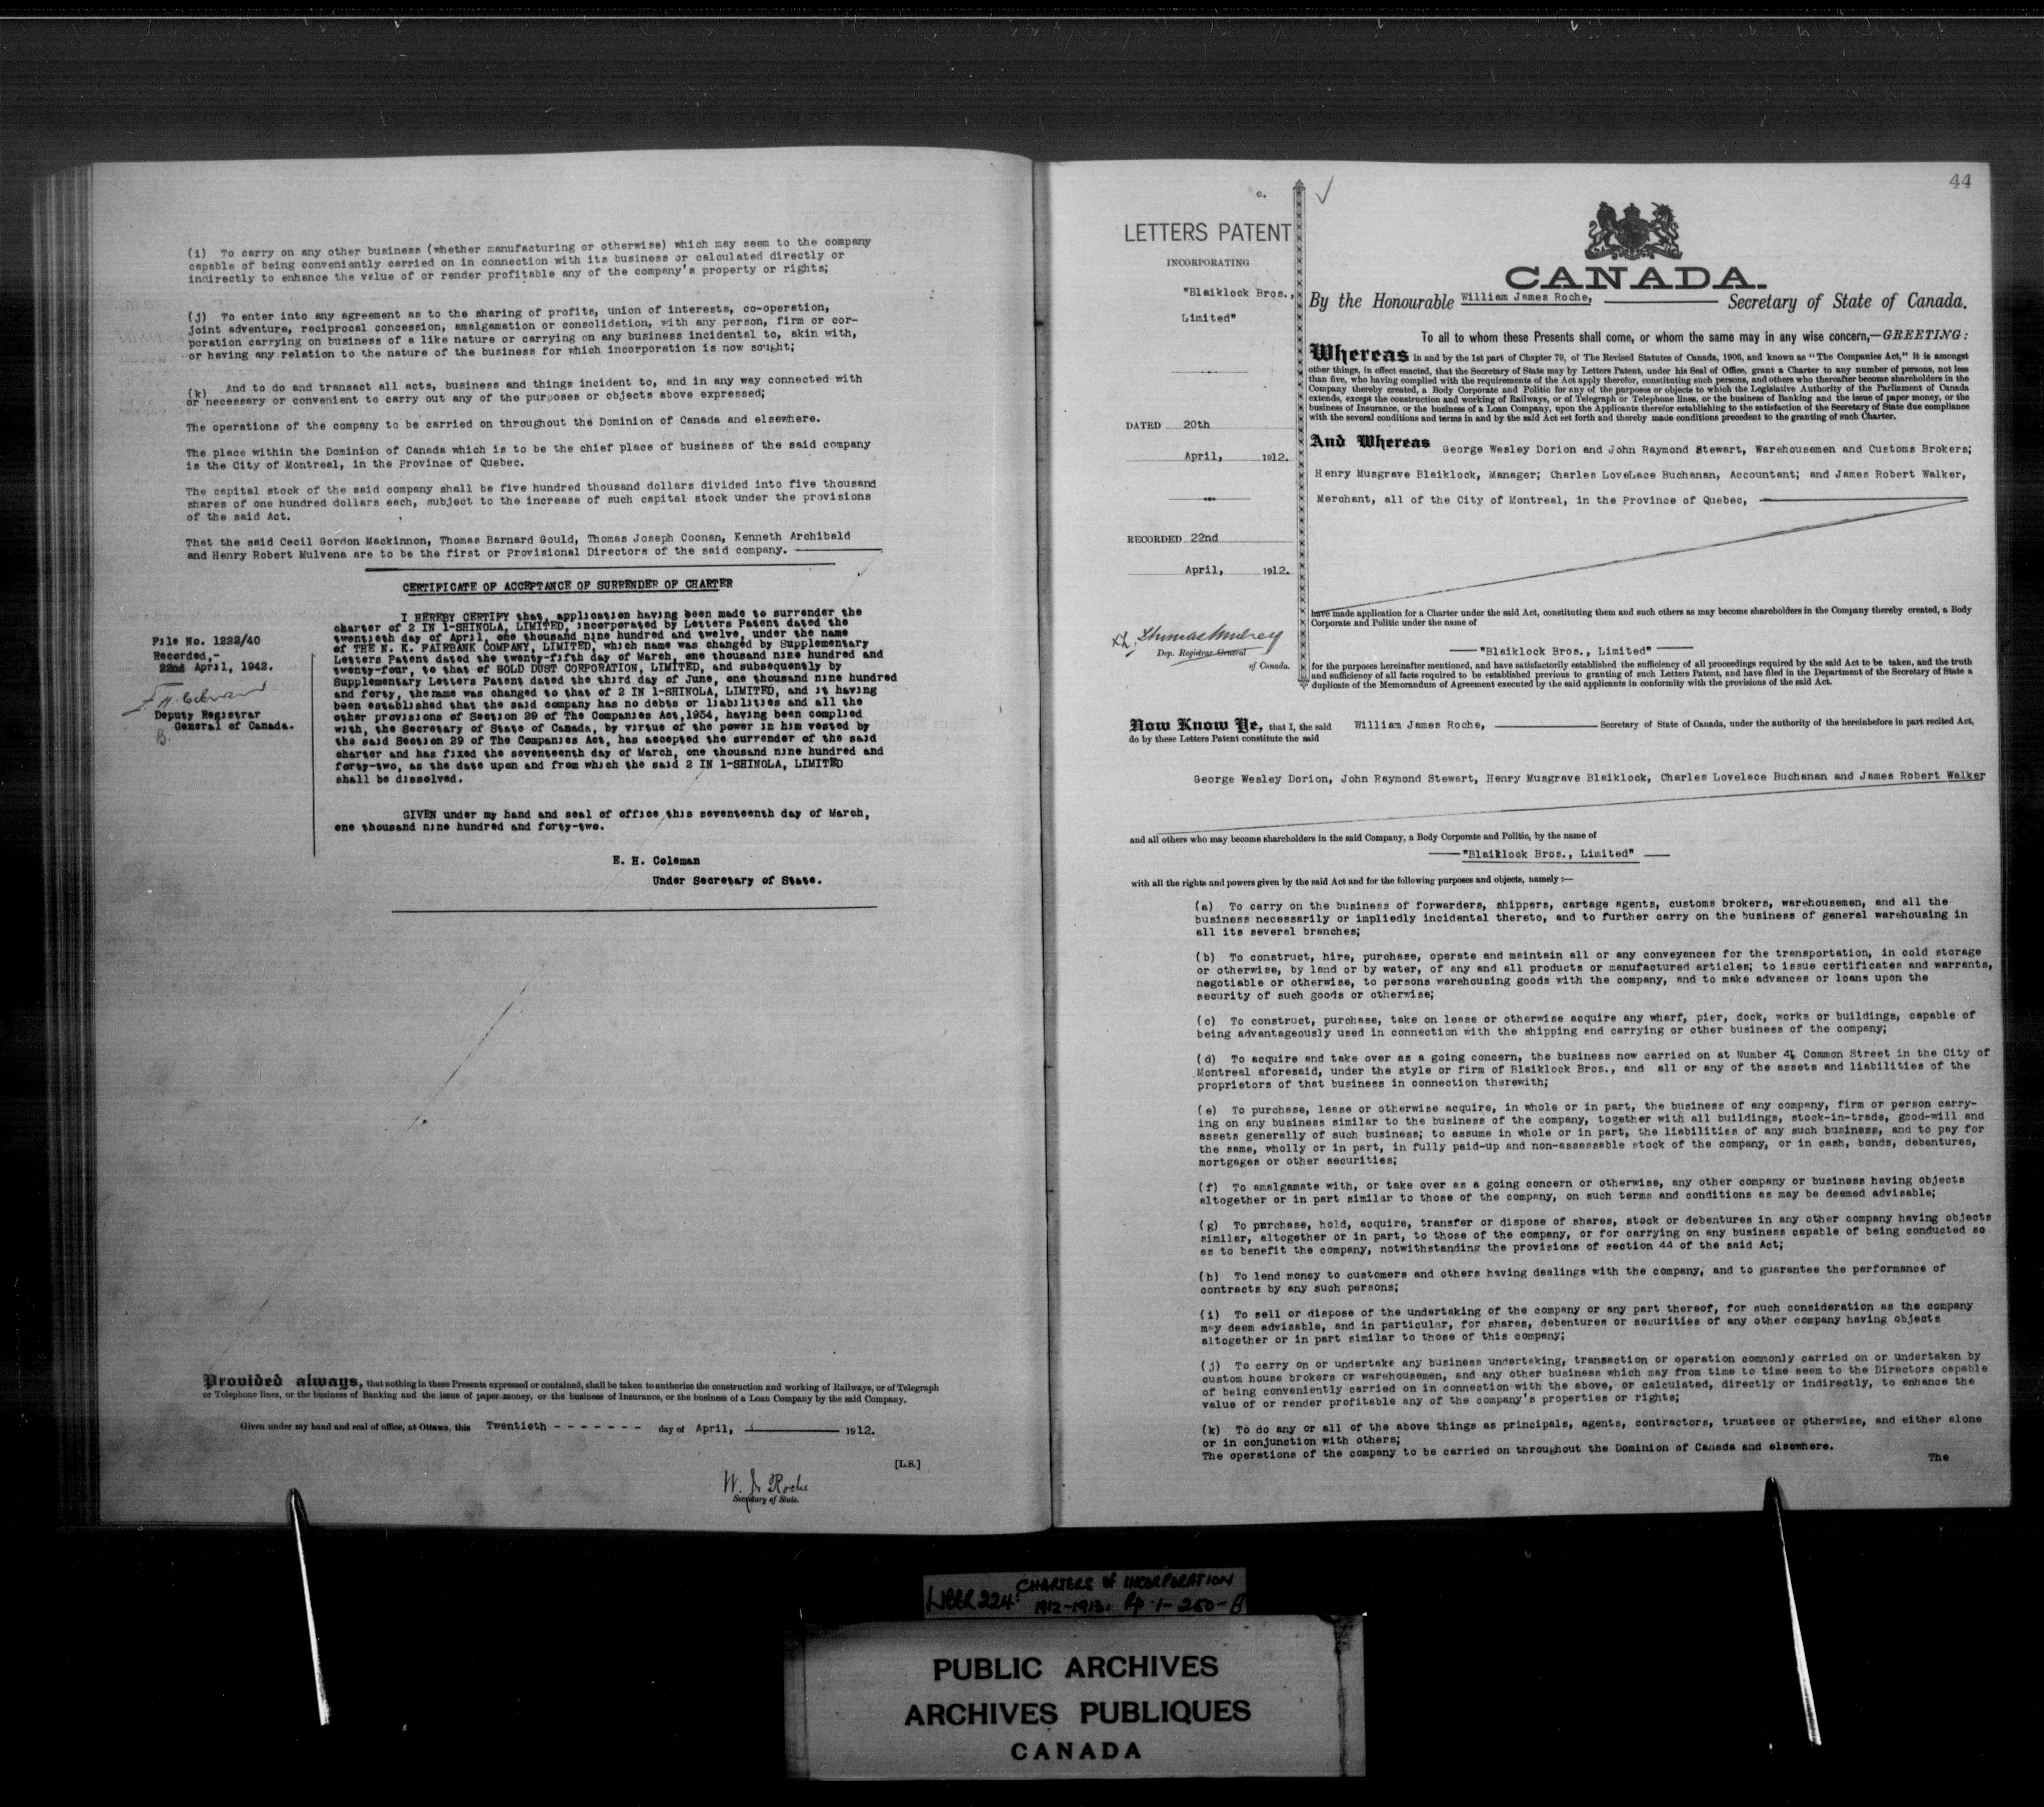 (i) To carry on any other business (whether manufacturing or otherwise) which may seem to the company
capable of being conveniently carried on in connection with its business or calculated directly or
indirectly to enhance the value of or render profitable any of the company's property or rights;
(j) To enter into any agreement as to the sharing of profits, union of interests, co-operation,
joint adventure, reciprocal concession, amalgamation or consolidation, with any person, firm or cor-
poration carrying on business of a like nature or carrying on any business incidental to, akin with,
or having any relation to the nature of the business for which incorporation is now sought;
(k) And to do and transact all acts, business and things incident to, and in any way connected with
or necessary or convenient to carry out any of the purposes or objects above expressed;
The operations of the company to be carried on throughout the Dominion of Canada and elsewhere.
The place within the Dominion of Canada which is to be the chief place of business of the said company
is the City of Montreal, in the Province of Quebec.
The capital stock of the said company shall be five hundred thousand dollars divided into five thousand
shares of one hundred dollars each, subject to the increase of such capital stock under the provisions
of the said Act.
That the said Cecil Gordon Mackinnon, Thomas Barnard Gould, Thomas Joseph Coonan, Kenneth Archibald
and Henry Robert Mulvena are to be the first or Provisional Directors of the said company.
CERTIFICATE OF ACCEPTANCE OF SURRENDER OF CHARTER
File No. 1222/40
Recorded,-
22nd April, 1942.
Deputy Registrar
General of Canada.
B.
I HEREBY CERTIFY that, application having been made to surrender the
charter of 2 IN 1-SHINOLA, LIMITED, incorporated by Letters Patent dated the
twentieth day of April, one thousand nine hundred and twelve, under the name
of THE N. K. FAIRBANK COMPANY, LIMITED, which name was changed by Supplementary
Letters Patent dated the twenty-fifth day of March, one thousand nine hundred and
twenty-four, to that of GOLD DUST CORPORATION, LIMITED, and subsequently by
Supplementary Letters Patent dated the third day of June, one thousand nine hundred
and forty, the name was changed to that of 2 IN 1-SHINOLA, LIMITED, and it having
been established that the said company has no debts or liabilities and all the
other provisions of Section 29 of The Companies Act,1934, having been complied
with, the Secretary of State of Canada, by virtue of the power in him vested by
the said Section 29 of The Companies Act, has accepted the surrender of the said
charter and has fixed the seventeenth day of March, one thousand nine hundred and
forty-two, as the date upon and from which the said 2 IN 1-SHINOLA, LIMITED
shall be dissolved.
GIVEN under my hand and seal of office this seventeenth day of March,
one thousand nine hundred and forty-two.
E. H. Coleman
Under Secretary of State.
Provided always, that nothing in these Presents expressed or contained, shall be taken to authorize the construction and working of Railways, or of Telegraph
or Telephone lines, or the business of Banking and the issue of paper money, or the business of Insurance, or the business of a Loan Company by the said Company.
Given under my hand and seal of office, at Ottawa, this Twentieth - - - - - - - day of April, 1912.
[L.S.]
W. J. Roche
Secretary of State.
44
c.
LETTERS PATENT
INCORPORATING
"Blaiklock Bros.,
Limited"
DATED 20th
April, 1912.
RECORDED 22nd
April, 1912.
Dep. Registrar General
of Canada.
CANADA.
By the Honourable William James Roche, Secretary of State of Canada.
To all to whom these Presents shall come, or whom the same may in any wise concern,—GREETING:
Whereas in and by the 1st part of Chapter 79, of The Revised Statutes of Canada, 1906, and known as "The Companies Act," it is amongst
other things, in effect enacted, that the Secretary of State may by Letters Patent, under his Seal of Office, grant a Charter to any number of persons, not less
than five, who having complied with the requirements of the Act apply therefor, constituting such persons, and others who thereafter become shareholders in the
Company thereby created, a Body Corporate and Politic for any of the purposes or objects to which the Legislative Authority of the Parliament of Canada
extends, except the construction and working of Railways, or of Telegraph or Telephone lines, or the business of Banking and the issue of paper money, or the
business of Insurance, or the business of a Loan Company, upon the Applicants therefor establishing to the satisfaction of the Secretary of State due compliance
with the several conditions and terms in and by the said Act set forth and thereby made conditions precedent to the granting of such Charter.
And Whereas George Wesley Dorion and John Raymond Stewart, Warehousemen and Customs Brokers;
Henry Musgrave Blaiklock, Manager; Charles LoveLace Buchanan, Accountant; and James Robert Walker,
Merchant, all of the City of Montreal, in the Province of Quebec,
have made application for a Charter under the said Act, constituting them and such others as may become shareholders in the Company thereby created, a Body
Corporate and Politic under the name of
"Blaiklock Bros., Limited"
for the purposes hereinafter mentioned, and have satisfactorily established the sufficiency of all proceedings required by the said Act to be taken, and the truth
and sufficiency of all facts required to be established previous to granting of such Letters Patent, and have filed in the Department of the Secretary of State a
duplicate of the Memorandum of Agreement executed by the said applicants in conformity with the provisions of the said Act.
Now Know Ye, that I, the said William James Roche, Secretary of State of Canada, under the authority of the hereinbefore in part recited Act,
do by these Letters Patent constitute the said
George Wesley Dorion, John Raymond Stewart, Henry Musgrave Blaiklock, Charles Lovelace Buchanan and James Robert Walker
and all others who may become shareholders in the said Company, a Body Corporate and Politic, by the name of
"Blaiklock Bros., Limited"
with all the rights and powers given by the said Act and for the following purposes and objects, namely :—
(a) To carry on the business of forwarders, shippers, cartage agents, customs brokers, warehousemen, and all the
business necessarily or impliedly incidental thereto, and to further carry on the business of general warehousing in
all its several branches;
(b) To construct, hire, purchase, operate and maintain all or any conveyances for the transportation, in cold storage
or otherwise, by land or by water, of any and all products or manufactured articles; to issue certificates and warrants,
negotiable or otherwise, to persons warehousing goods with the company, and to make advances or loans upon the
security of such goods or otherwise;
(c) To construct, purchase, take on lease or otherwise acquire any wharf, pier, dock, works or buildings, capable of
being advantageously used in connection with the shipping and carrying or other business of the company;
(d) To acquire and take over as a going concern, the business now carried on at Number Common Street in the City of
Montreal aforesaid, under the style or firm of Blaiklock Bros., and all or any of the assets and liabilities of the
proprietors of that business in connection therewith;
(e) To purchase, lease or otherwise acquire, in whole or in part, the business of any company, firm or person carry-
ing on any business similar to the business of the company, together with all buildings, stock-in-trade, good-will and
assets generally of such business; to assume in whole or in part, the liabilities of any such business, and to pay for
the same, wholly or in part, in fully paid-up and non-assessable stock of the company, or in cash, bonds, debentures,
mortgages or other securities;
(f) To amalgamate with, or take over as a going concern or otherwise, any other company or business having objects
altogether or in part similar to those of the company, on such terms and conditions as may be deemed advisable;
(g) To purchase, hold, acquire, transfer or dispose of shares, stock or debentures in any other company having objects
similar, altogether or in part, to those of the company, or for carrying on any business capable of being conducted so
as to benefit the company, notwithstanding the provisions of section 44 of the said Act;
(h) To lend money to customers and others having dealings with the company, and to guarantee the performance of
contracts by any such persons;
(i) To sell or dispose of the undertaking of the company or any part thereof, for such consideration as the company
may deem advisable, and in particular, for shares, debentures or securities of any other company having objects
altogether or in part similar to those of this company;
(j) To carry on or undertake any business undertaking, transaction or operation commonly carried on or undertaken by
custom house brokers or warehousemen, and any other business which may from time to time seem to the Directors capable
of being conveniently carried on in connection with the above, or calculated, directly or indirectly, to enhance the
value of or render profitable any of the company's properties or rights;
(k) To do any or all of the above things as principals, agents, contractors, trustees or otherwise, and either alone
or in conjunction with others;
The operations of the company to be carried on throughout the Dominion of Canada and elsewhere.
The
LIBER 224: CHARTERS of INCORPORATION
1912-1913. Pp. 1-250-B
PUBLIC ARCHIVES
ARCHIVES PUBLIQUES
CANADA